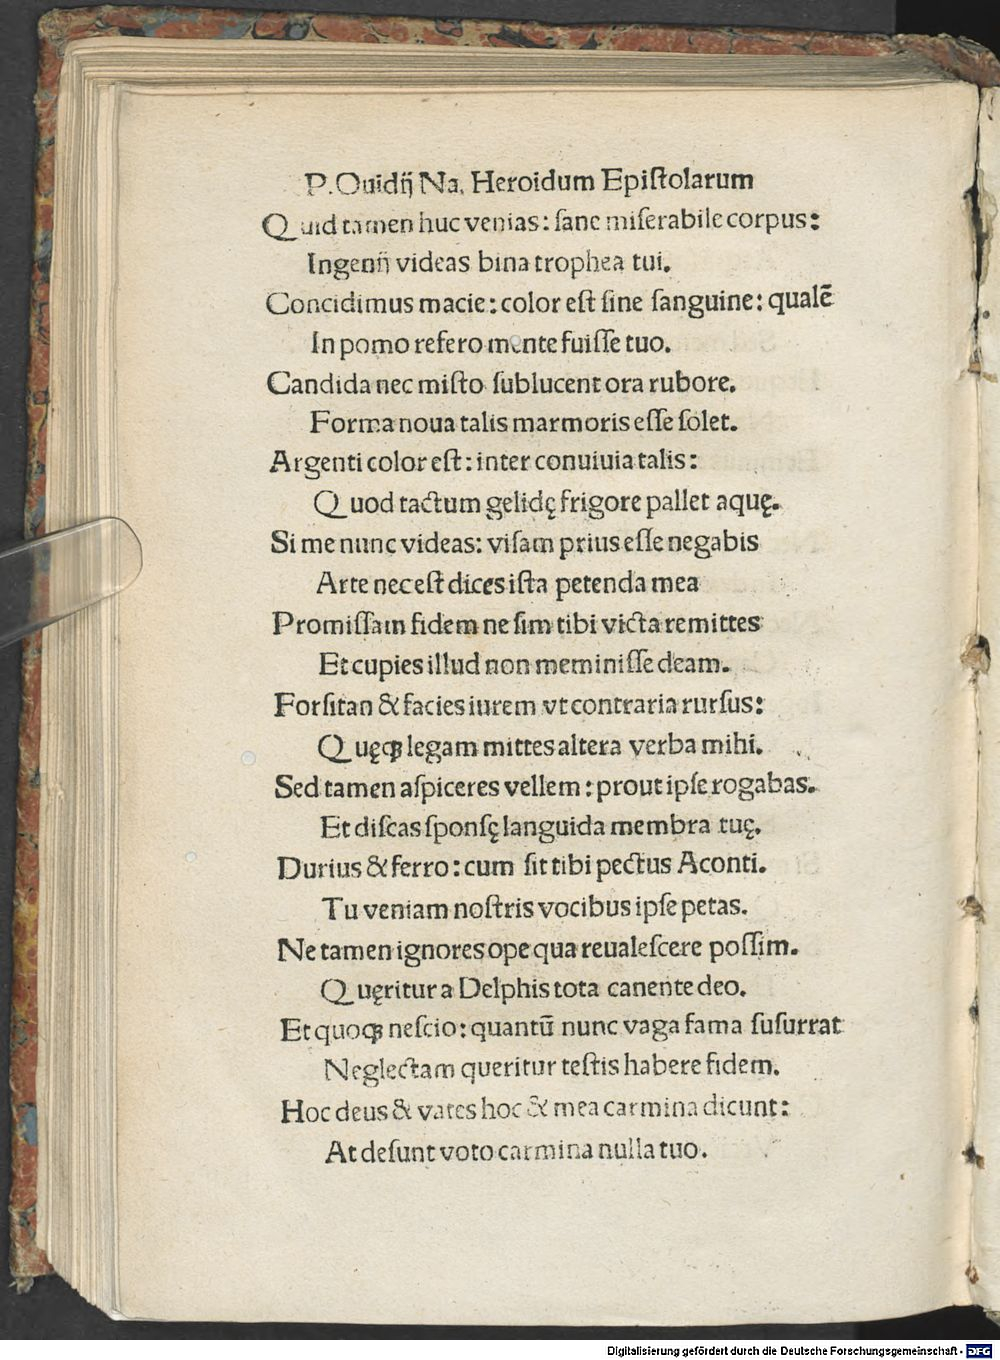 P.Ouidij Na. Heroidum Epiſtolarum
Quid tamen huc venias: ſane miſerabile corpus:
Ingenij videas bina trophea tui.
Concidimus macie: color eſt ſine ſanguine: qualē
In pomo refero mente fuiſſe tuo.
Candida nec miſto ſublucent ora rubore.
Forma noua talis marmoris eſſe ſolet.
Argenti color eſt: inter conuiuia talis:
Quod tactum gelidę frigore pallet aquę.
Si me nunc videas: viſam prius eſſe negabis
Arte nec eſt dices iſta petenda mea
Promiſſam fidem ne ſim tibi victa remittes
Et cupies illud non meminiſſe deam.
Forſitan & facies iurem vt contraria rurſus:
Quęqꝫ legam mittes altera verba mihi.
Sed tamen aſpiceres vellem: prout ipſe rogabas.
Et diſcas ſponſę languida membra tuę.
Durius & ferro: cum ſit tibi pectus Aconti.
Tu veniam noſtris vocibus ipſe petas.
Ne tamen ignores ope qua reualeſcere poſſim.
Quęritur a Delphis tota canente deo.
Et quoqꝫ neſcio: quantū nunc vaga fama ſuſurrat
Neglectam queritur teſtis habere fidem.
Hoc deus & vates hoc & mea carmina dicunt:
At deſunt voto carmina nulla tuo.
Digitalisierung gefördert durch die Deutsche Forschungsgemeinschaft - DFG